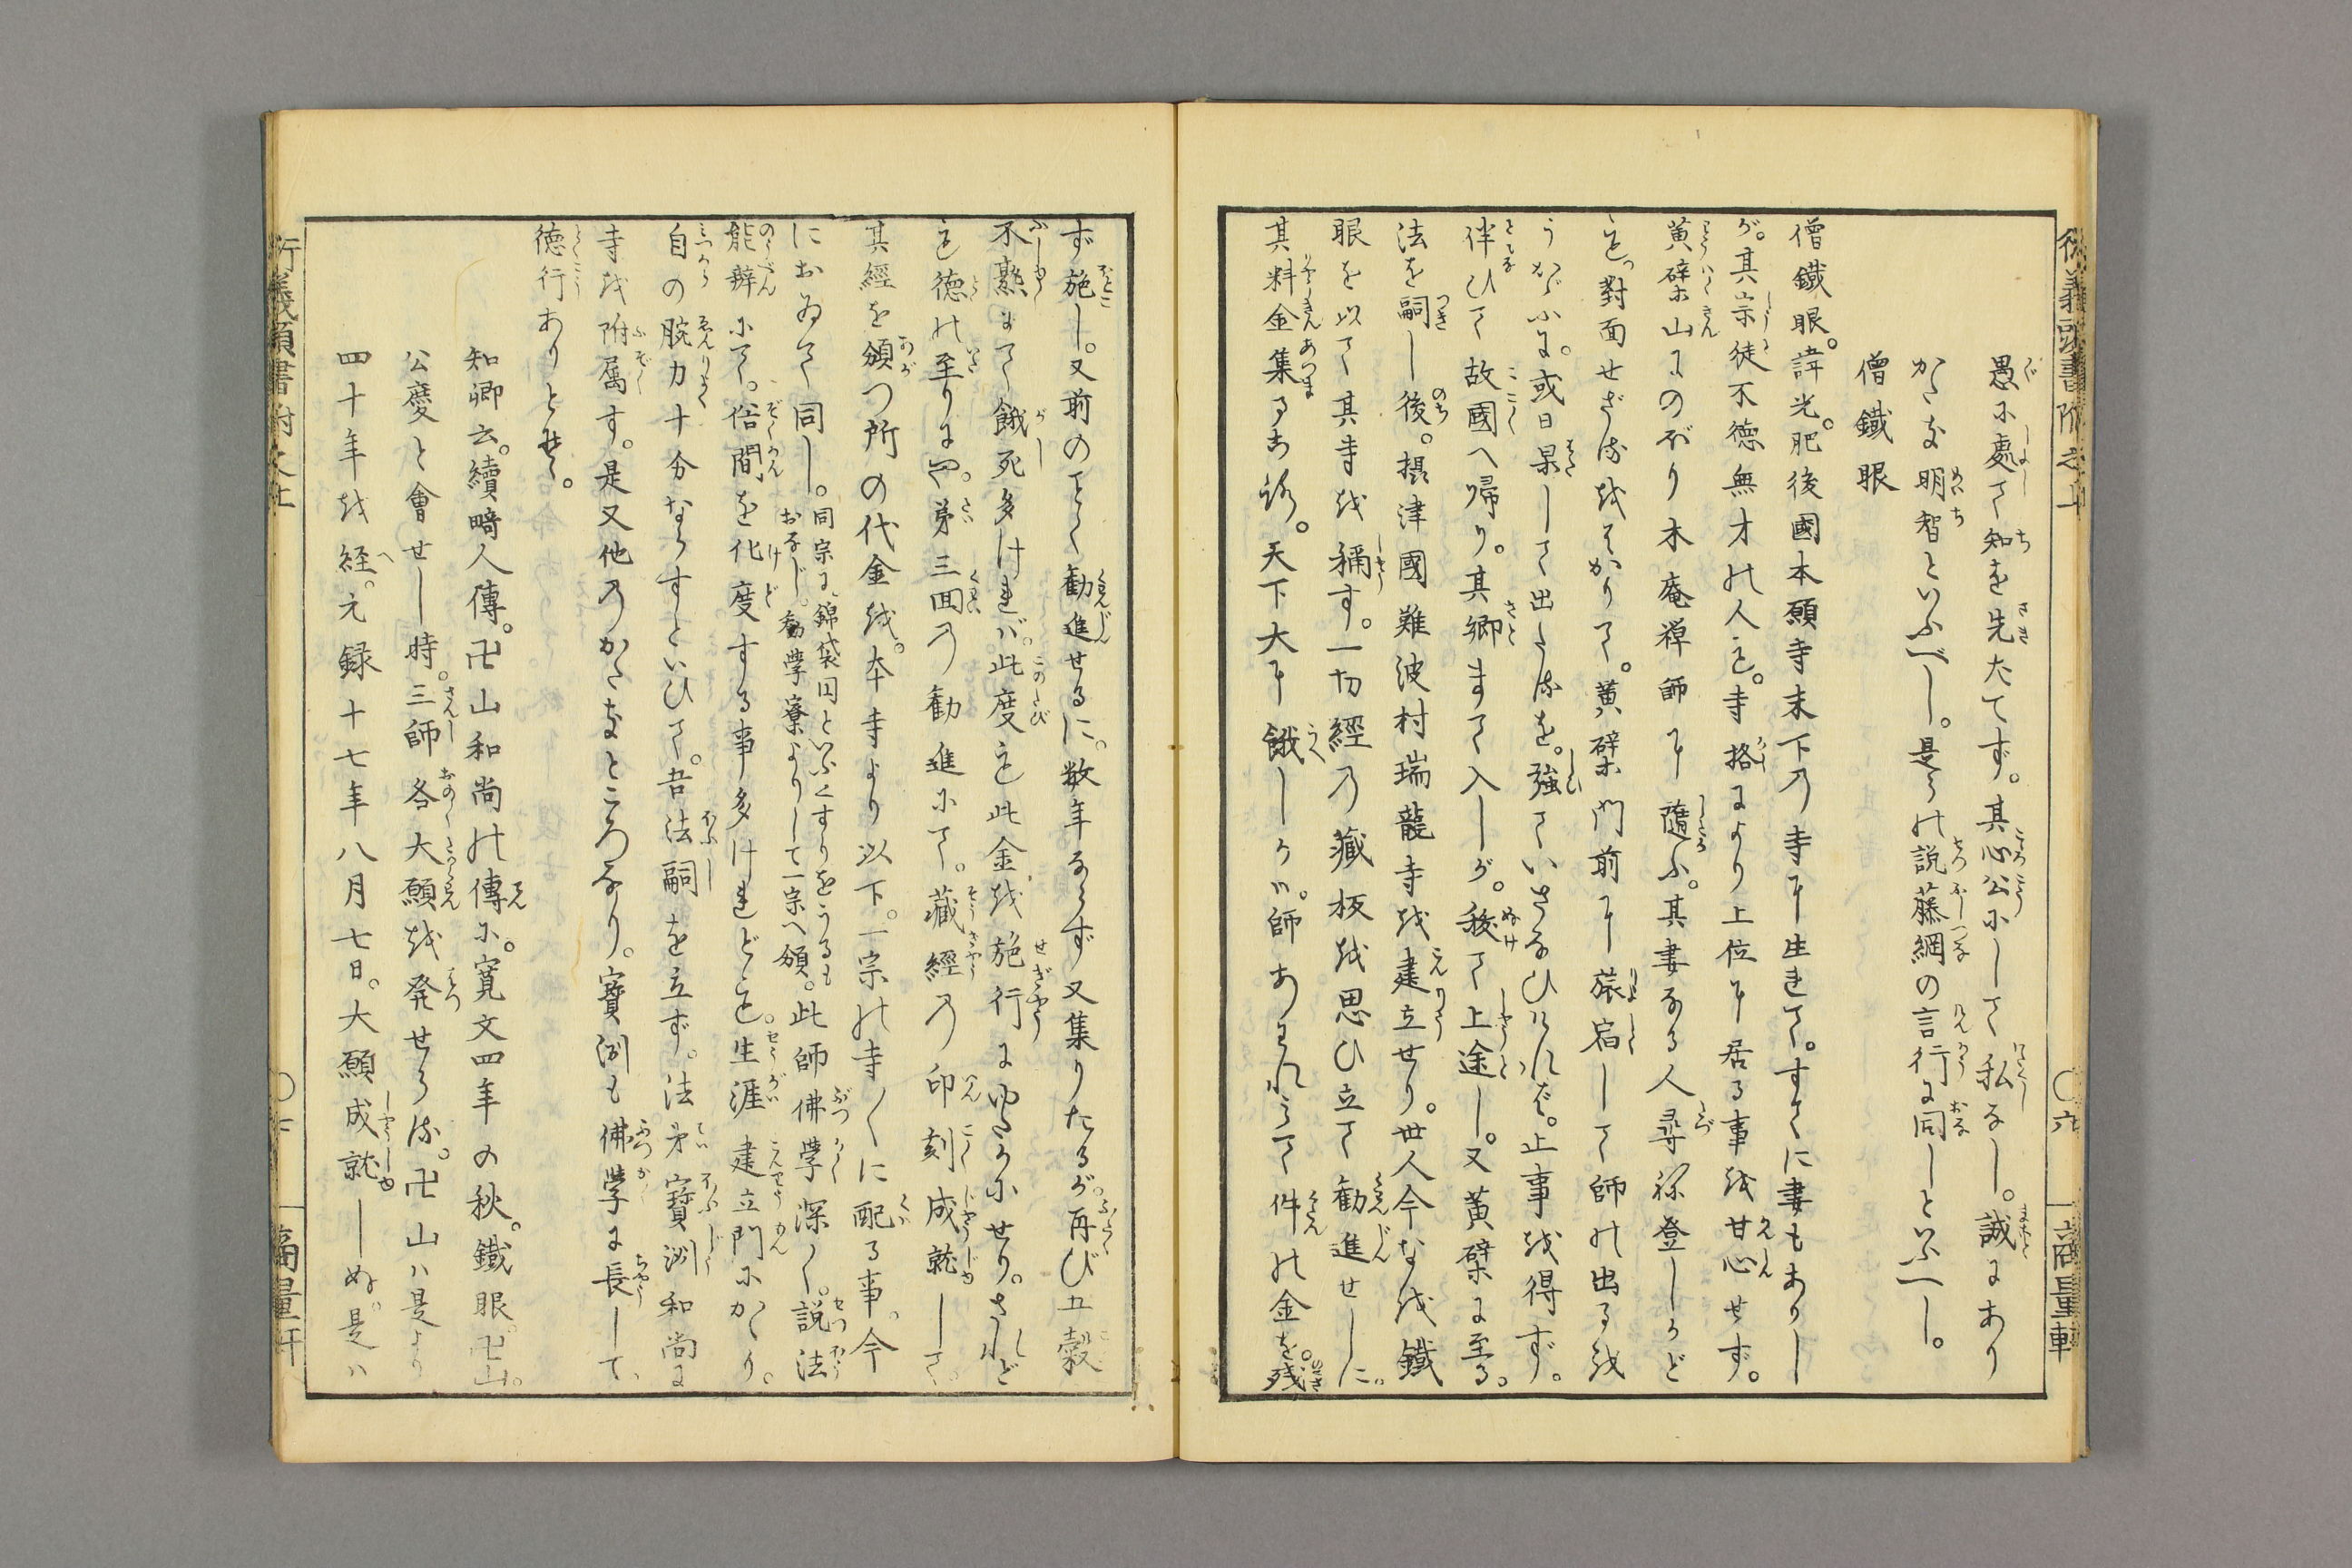 愚に處て知を先たてず。其心公にして私なし。誠にあり
かたき明智といふべし。是らの説藤綱の言行に同しといふべし。
僧鐵眼
僧鐵眼。諱光。肥後國本願寺末下の寺に生れて。すてに妻もありし
が。其宗徒不徳無才の人も。寺格により上位に居る事を甘心せず。
黄檗山にのぼり木庵禅師に隨ふ。其妻なる人尋ね登しかど
も。對面せざるをはかりて。黄檗門前に旅宿して師の出るを
うかゞふに。或日果して出たるを。強ていさなひければ。止事を得ず。
伴ひて故國へ帰り。其郷まて入しが。移て上途し。又黄檗に至る。
法を嗣し後。摂津國難波村瑞龍寺を建立せり。世人今なを鐵
眼を以て其寺を稱す。一切經の藏板を思ひ立て勧進せしに。
其料金集るころ。天下大に餓しかハ。師あわれミて件の金を。残
ず施し。又前のことく勧進せるに。数年ならず又集りたるが。再び五穀
不熟にて餓死多ければ。此度も此金を施行にゆたかにせり。されど
も徳の至りにや。第三回の勧進にて。藏經の印刻成就して。
其經を頒つ所の代金を。本寺より以下。一宗の寺〱に配る事。今
におゐて同し。同宗に錦袋円といふくすりをうるも
おなじ。勧學寮よりして一宗へ頒。此師佛學深く。説法
能辨にて。俗間を化度する事多けれども。生涯建立門にかゝり。
自の腕力十分ならすといひて。吾法嗣を立ず。法弟寶洲和尚に
寺を附属す。是又他のかたきところなり。寶洲も佛學に長して。
徳行ありとぞ。
知卿云。續畸人傳。卍山和尚の傳に。寛文四年の秋。鐵眼。卍山。
公慶と會せし時。三師各大願を発せらる。卍山ハ是より
四十年を経。元録十七年八月七日。大願成就しぬ。是ハ